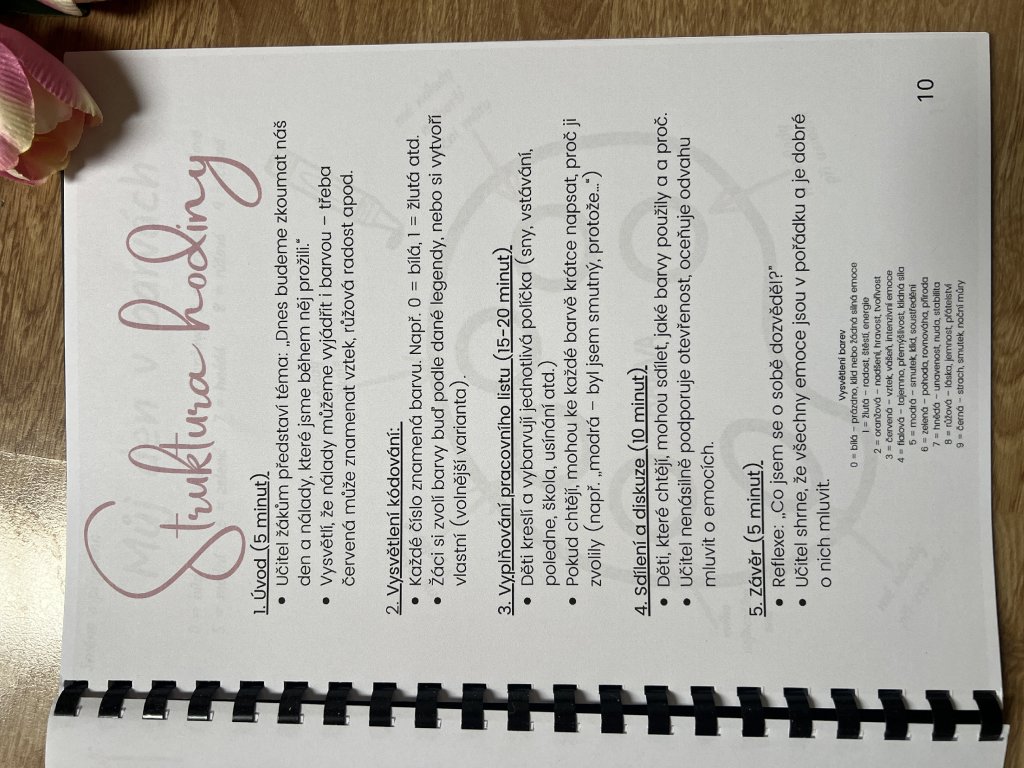 Struktura hodiny
1. Úvod (5 minut)
• Učitel žákům představí téma: „Dnes budeme zkoumat náš
den a nálady, které jsme během něj prožili.“
• Vysvětlí, že nálady můžeme vyjádřit i barvou – třeba
červená může znamenat vztek, růžová radost apod.
2. Vysvětlení kódování:
• Každé číslo znamená barvu. Např. 0 = bílá, 1 = žlutá atd.
• Žáci si zvolí barvy buď podle dané legendy, nebo si vytvoří
vlastní (volnější varianta).
3. Vyplňování pracovního listu (15–20 minut)
• Děti kreslí a vybarvují jednotlivá políčka (sny, vstávání,
poledne, škola, usínání atd.)
• Pokud chtějí, mohou ke každé barvě krátce napsat, proč ji
zvolily (např. „modrá – byl jsem smutný, protože...“)
4. Sdílení a diskuze (10 minut)
• Děti, které chtějí, mohou sdílet, jaké barvy použily a a proč.
• Učitel nenásilně podporuje otevřenost, oceňuje odvahu
mluvit o emocích.
5. Závěr (5 minut)
• Reflexe: „Co jsem se o sobě dozvěděl?”
• Učitel shrne, že všechny emoce jsou v pořádku a je dobré
o nich mluvit.
Vysvětlení barev
0 = bílá – prázdno, klid nebo žádná silná emoce
1 = žlutá – radost, štěstí, energie
2 = oranžová – nadšení, hravost, tvořivost
3 = červená – vztek, vášeň, intenzivní emoce
4 = fialová – tajemno, přemýšlivost, klidná síla
5 = modrá – smutek, klid, soustředění
6 = zelená – pohoda, rovnováha, příroda
7 = hnědá – unavenost, nuda, stabilita
8 = růžová – láska, jemnost, přátelství
9 = černá – strach, smutek, noční můry
10